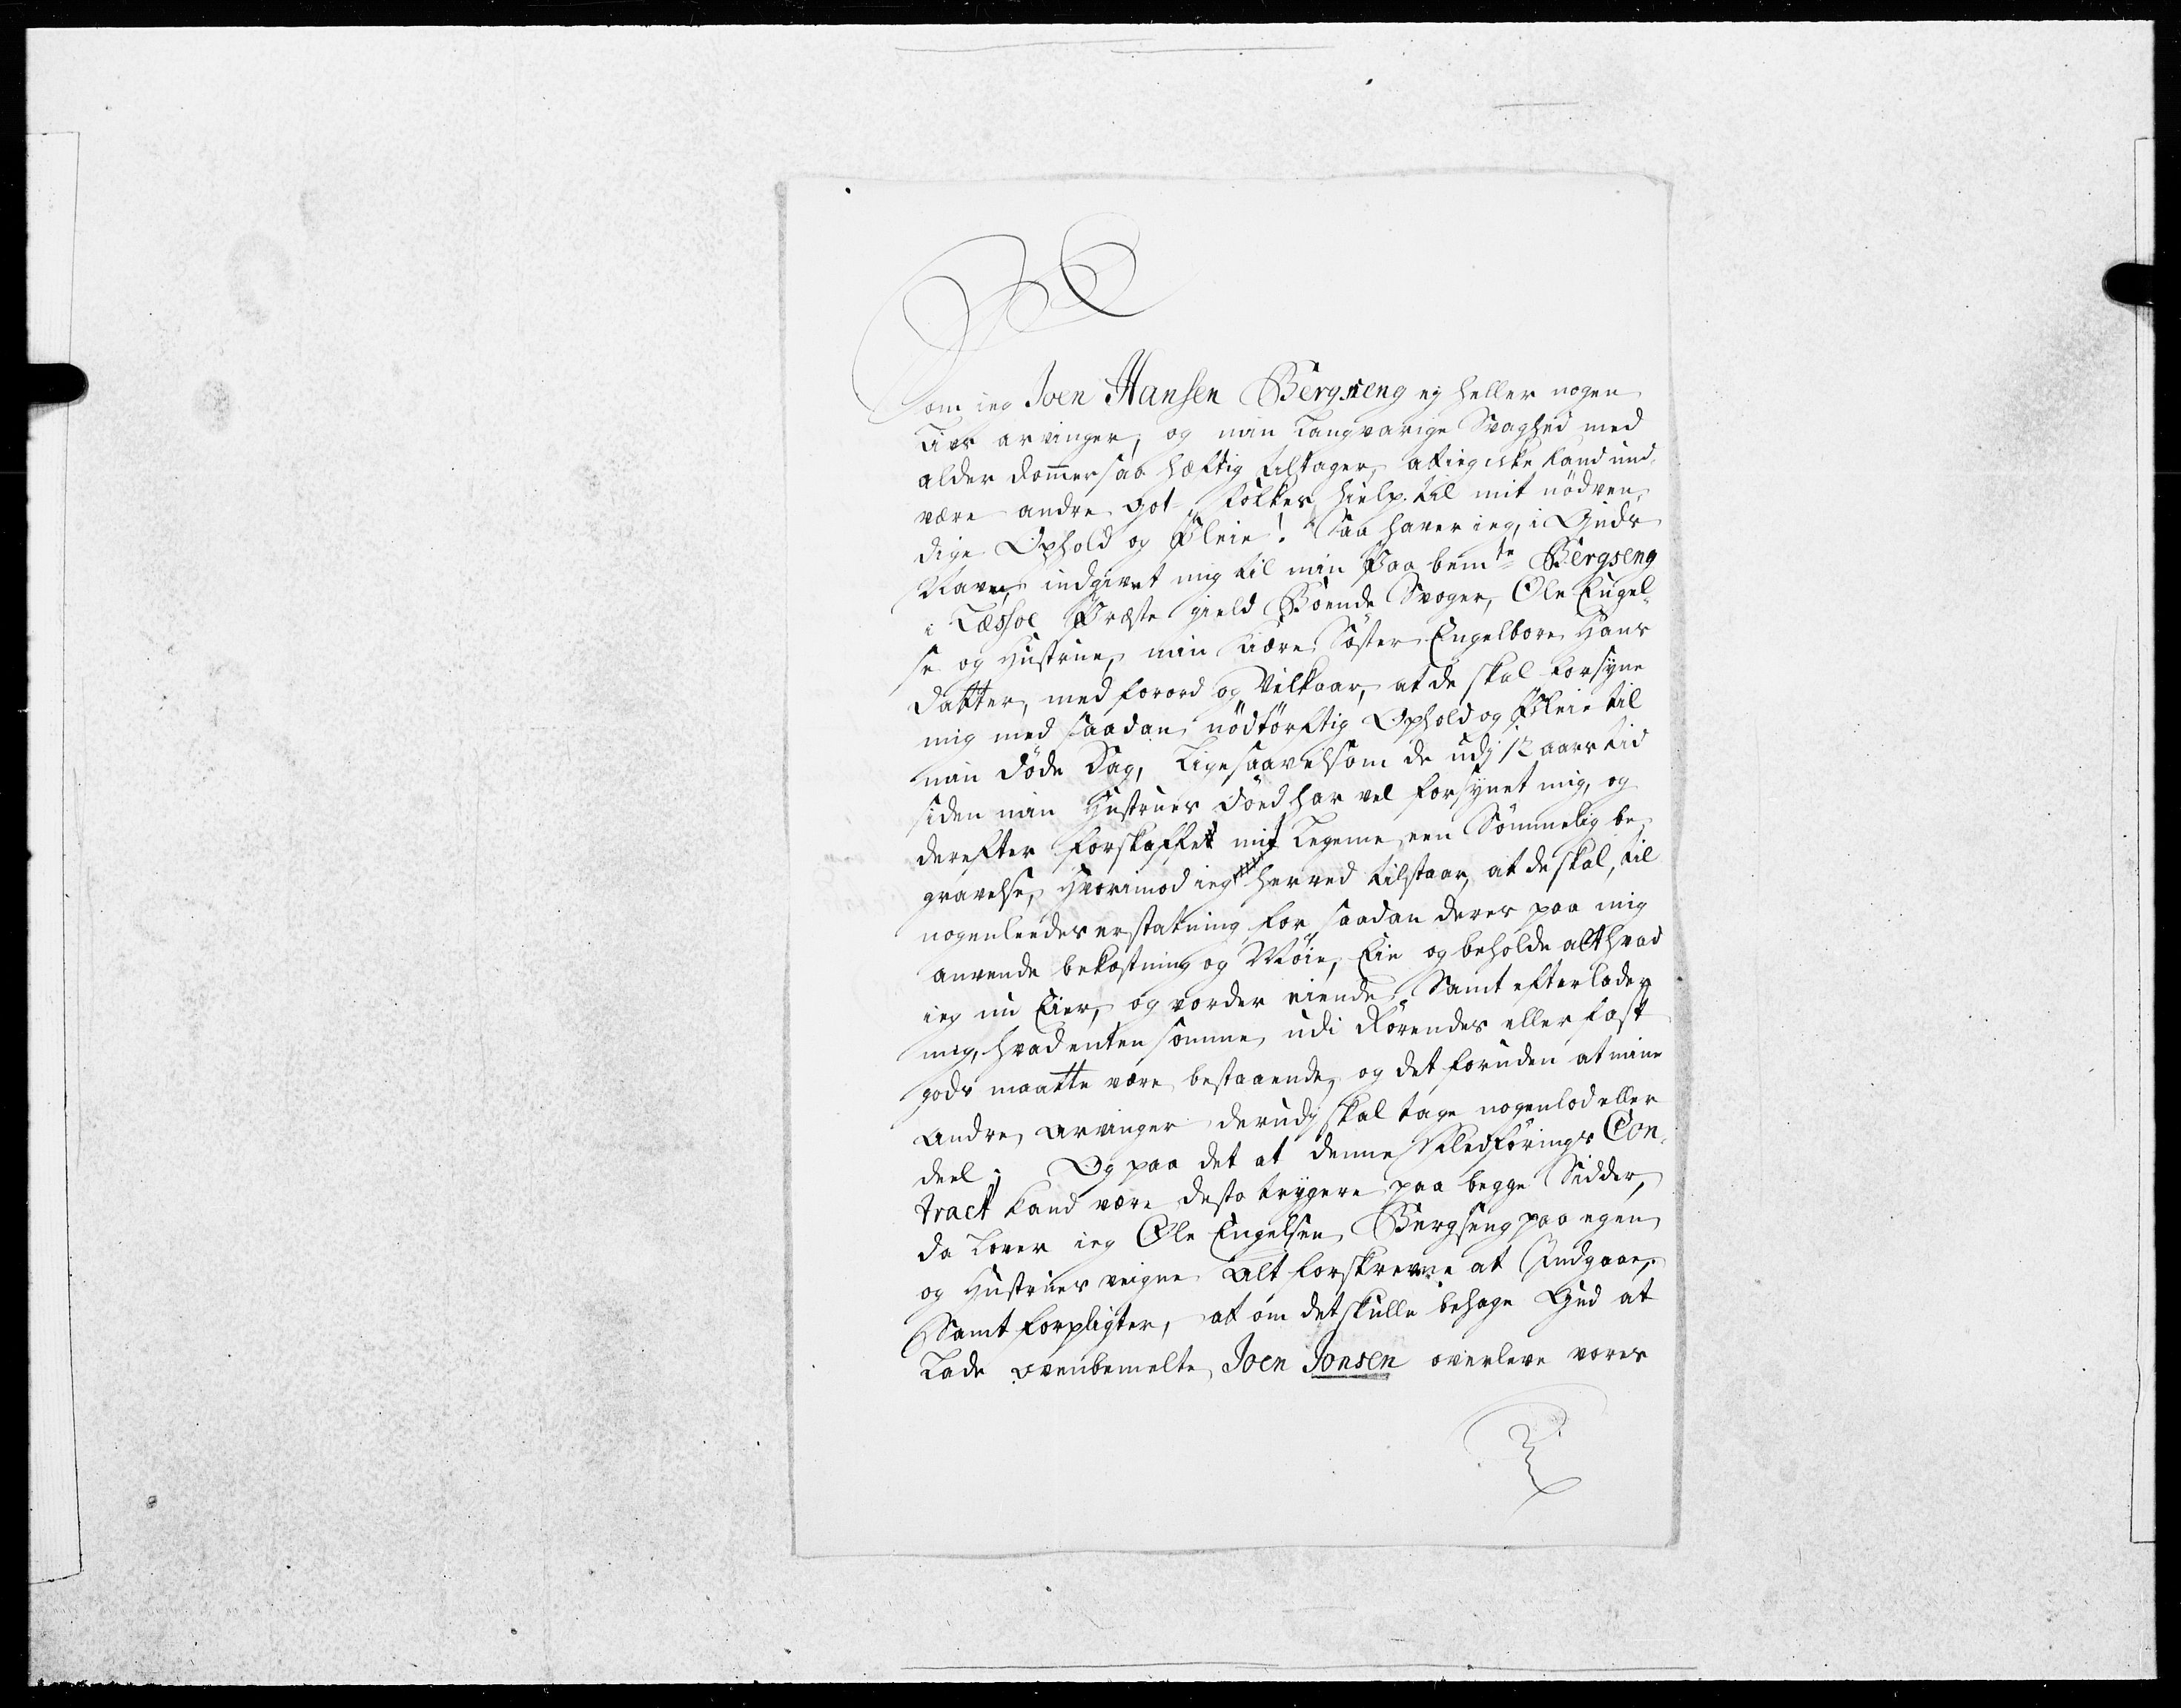 Som ieg Joen Hansen Bergseng ej heller nogen
Livs arvinger, og min Langvarige Svaghed med
alderdommer saa hæftig tiltager, at ieg iche kand und-
være andre Got Folkes hielp til mit nødven-
dige Ophold og Pleie! Saa haver ieg, i Guds
Navn, indgivet mig til min Paa bemte Bergseng
i Læssøe Præste gield Boende Svoger, Ole Engel-
se og Hustrue, min kiære Søster Engelbore Hans
datter, med forord og Vilkaar, at de skal forsyne
mig med saadan nødtørftig Ophold og Pleie til
min døde Dag, Ligesaavelsom de udj 12 aars tid
siden min Hustrues Død har vel forsynet mig, og
derefter forskaffet mit Legeme een Sømmelig be-
gravelse, Hvorimod ieg herved tilstaar, at de skal, til
nogenleedes erstatning for saadan deres paa mig
anvende bekostning og Møie, Eie og beholde alt hvad
ieg nu Eier, og vorder eiende, Samt efterlader
mig, hvad enten somme udi Rørendes eller fast
gods maatte være bestaaende, og det foruden at mine
andre arvinger derudj skal tage nogen lod eller
deel; Og paa det at denne Fledførings Con-
tract kand være desto trygere paa begge Sidder,
da Lover ieg Ole Engelsen Bergseng paa egen
og Hustrues veigne alt forskrevne at Indgaae,
Samt forpligter, at om det skulle behage Gud at
Lade ovenbemelte Joen Jonsen overleve vores